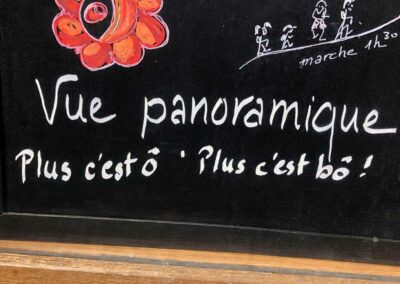 marche 1h30
Vue panoramique
Plus c'est ô . Plus c'est bô !